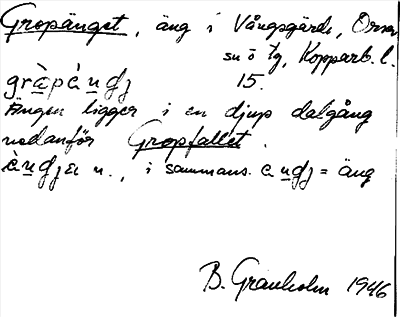 Gropänget, äng i Vångsgärde, Orsa
sn o tg, Kopparb. l.
15.
Ängen ligger i en djup dalgång
nedanför Gropfallet.
n., i sammans. = äng
B. Granholm 1946